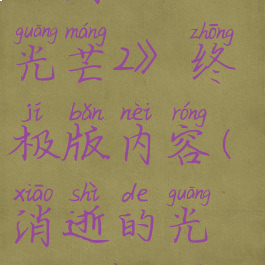 guāng máng zhōng
光芒2》 终
jí bǎn nèi róng
极版内容(
xiāo shì de guāng
消逝的光